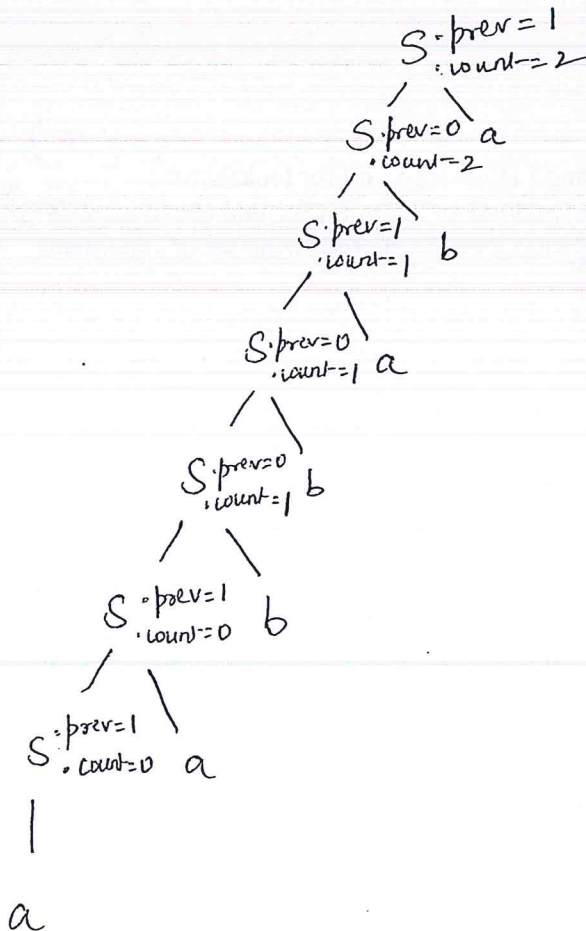 S .prev = 1
.count = 2
S .prev=0 a
.count=2
S .prev=1 b
.count=1
S .prev=0 a
.count=1
S .prev=0 b
.count=1
S .prev=1 b
.count=0
S .prev=1
.count=0 a
a